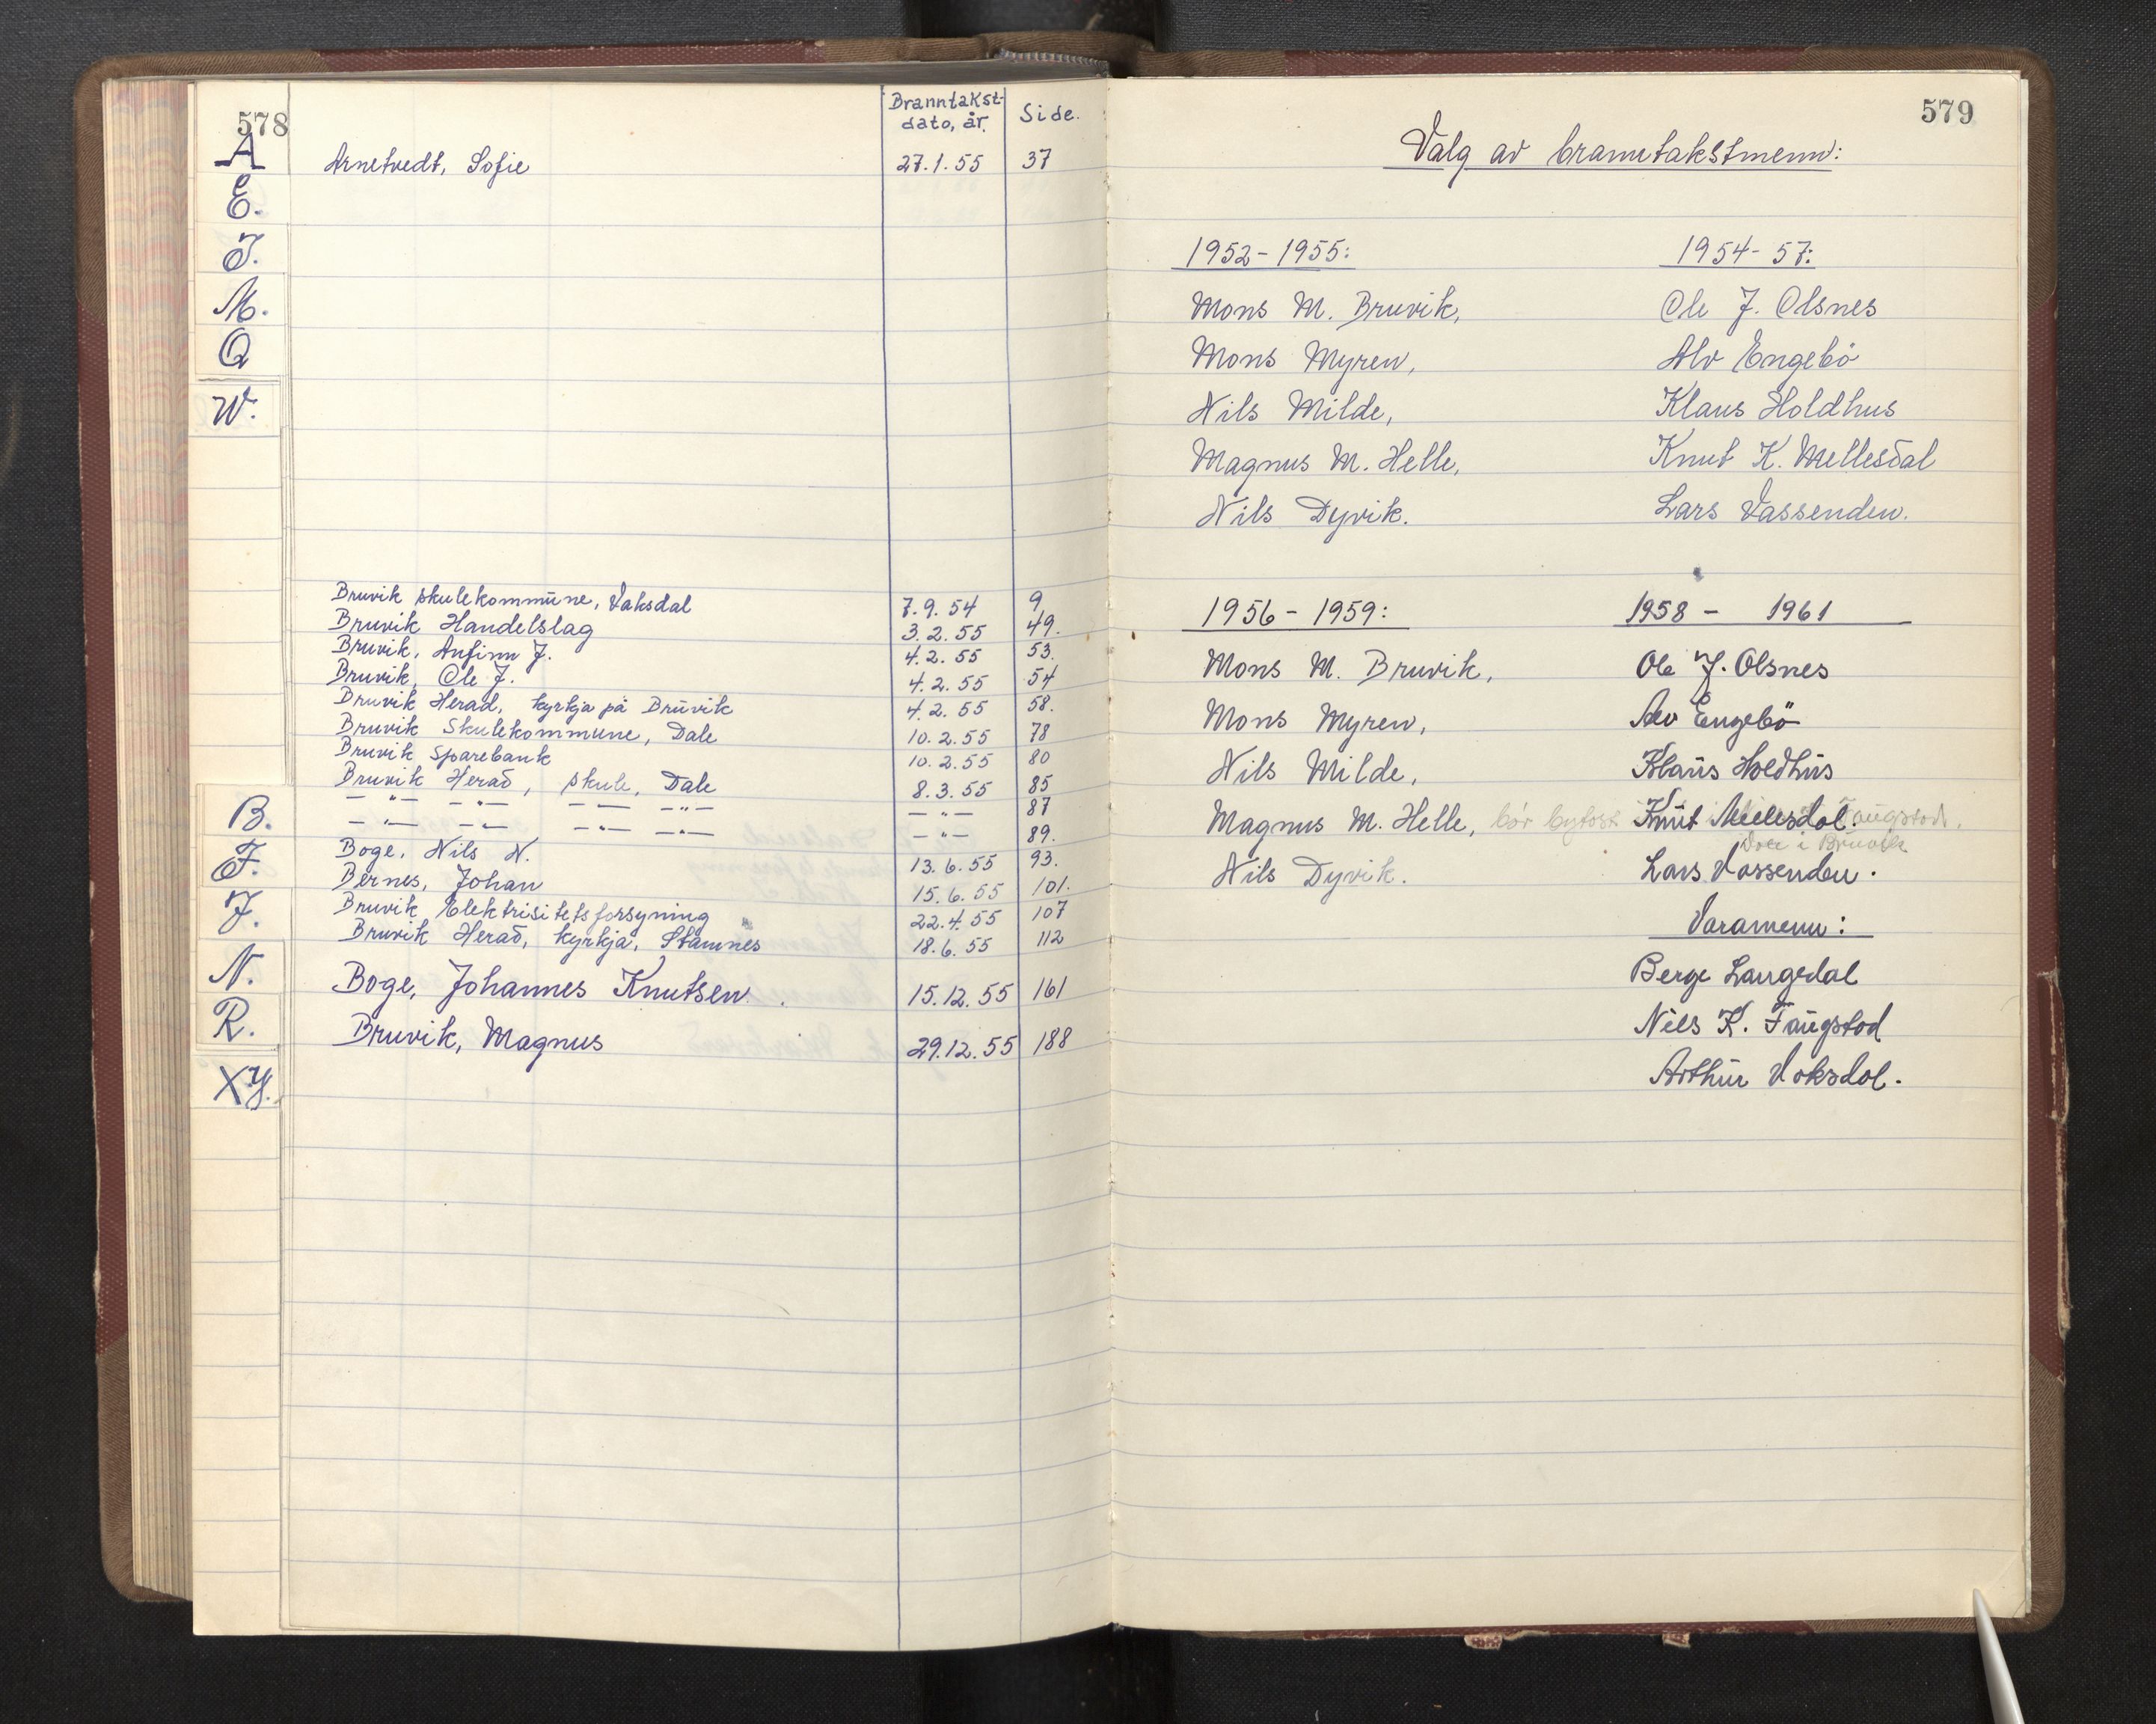 578
Branntakst-
dato, år.
Side.
A
Arnetvedt, Sofie 27.1.55 37
E.
I.
M.
Q
W.
Bruvik skulekommune, Vaksdal 7.9.54 9
Bruvik Handelslag 3.2.55 49.
Bruvik, Anfinn J. 4.2.55 53.
Bruvik, Ole J. 4.2.55 54
Bruvik Herad, kyrkja på Bruvik 4.2.55 58.
Bruvik Skulekommune, Dale 10.2.55 78
Bruvik Sparebank 10.2.55 80
Bruvik Herad, skule, Dale 8.3.55 85
— " — — " — — " — — " — — " — 87
— " — — " — — " — — " — — " — 89.
Boge, Nils N. 13.6.55 93.
Bernes, Johan 15.6.55 101.
Bruvik Elektrisitetsforsyning 22.4.55 107
Bruvik Herad, kyrkja, Stamnes 18.6.55 112
Boge, Johannes Knutsen. 15.12.55 161
Bruvik, Magnus 29.12.55 188
B.
F.
J.
N.
R.
XY.
579
Valg av branntakstmenn:
1952-1955: 1954-57:
Mons M. Bruvik, Ole J. Olsnes
Mons Myren, Alv Engebø
Nils Milde, Klaus Holdhus
Magnus M. Helle, Knut K. Mellesdal
Nils Dyvik. Lars Vassenden.
1956-1959: 1958 - 1961
Mons M. Bruvik, Ole J. Olsnes
Mons Myren, Alv Engebö
Nils Milde, Klaus Holdhus
Magnus M. Helle, bör Knut Mellesdal. Faugstad.
i Bruvik
Nils Dyvik. Lars Vassenden.
Varamenn:
Berge Langedal
Nils K. Faugstad
Arthur Vaksdal.